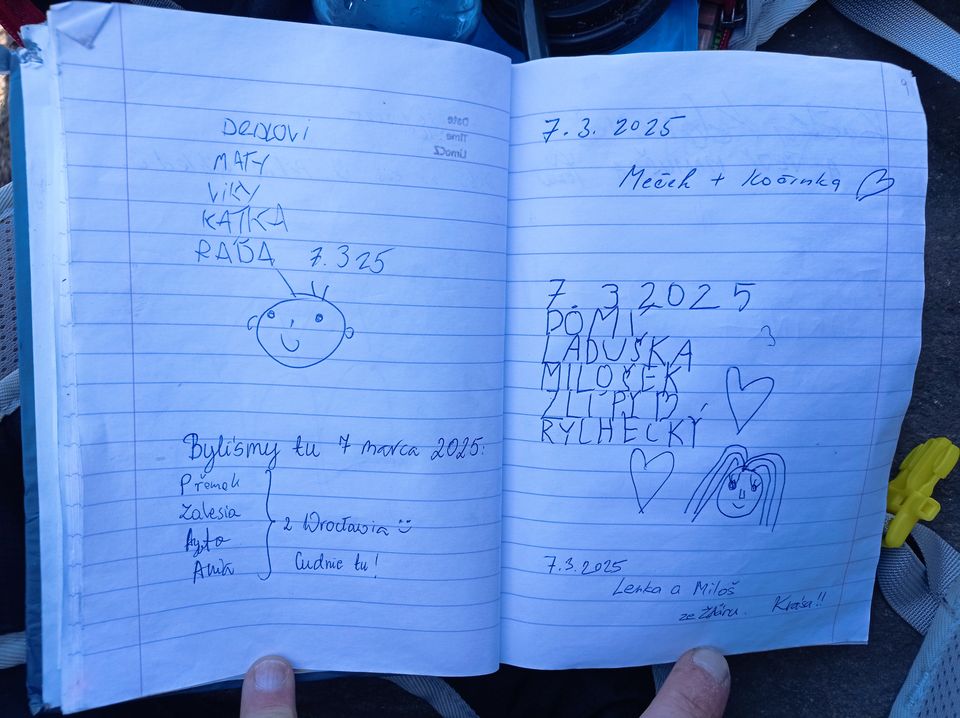 MATY
VIKY
KATKA
RÁĎA 7.3 25
Byliśmy tu 7 marca 2025:
Přemek
Zalesia
Ania
z Wrocławia
Cudnie tu!
Date
Time
LimoCZ
9
7.3. 2025
Meček + Kočinka
7. 3 2025
DOMI,
LADUŠKA
MILOŠEK
ŽLÍPY
RYCHECKÝ
7.3.2025
Lenka a Miloš
ze Žďáru. Krása!!